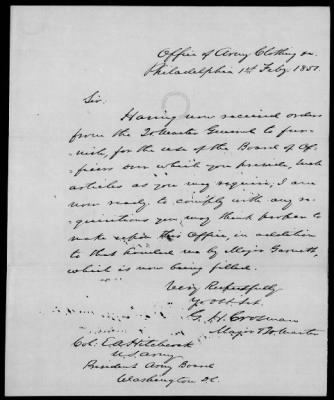 Office of Army Clothing &c.
Philadelphia 1st Feby. 1851.
Sir:
Having now received orders
from the Qr Master General to fur-
-nish, for the use of the Board of Of-
-ficers over which you preside, such
articles as you may require, I am
now ready to comply with any re-
-quisitions you may think proper to
make upon this Office, in addition
to that handed me by Major
which is now being filled.
Very Respectfully
Yr Obt. Svt.
G. H. Crosman
Major &
Col: E A Hitchcock
U.S. Army
President Army Board
Washington D.C.